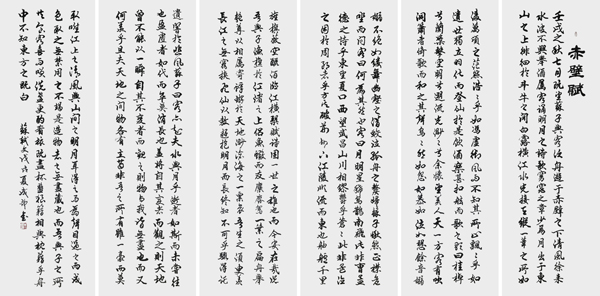 赤壁賦
壬戌之秋七月既望蘇子與客泛舟游于赤壁之下清風徐来
水波不興舉酒属客誦明月之詩歌窈窕之章少焉月出于東
山之上徘徊於斗牛之間白露横江水光接天縱一葦之所如
凌萬頃之茫然浩浩乎如馮虚御風而不知其所止飄飄乎如
遺世獨立羽化而登仙於是飲酒樂甚扣舷而歌之歌曰桂棹
兮蘭槳擊空明兮溯流光渺渺兮予懷望美人兮天一方客有吹
洞簫者倚歌而和之其聲嗚嗚然如怨如慕如泣如訴餘音嫋
嫋不絶如縷舞幽壑之潜蛟泣孤舟之嫠婦蘇子愀然正襟危
坐而問客曰何為其然也客曰月明星稀烏鵲南飛此非曹孟
德之詩乎東望夏口西望武昌山川相繆鬱乎蒼蒼此非孟德
之困於周郎者乎方其破荆州下江陵順流而東也舳艫千里
旌旗蔽空釃酒臨江横槊賦詩固一世之雄也而今安在哉况
吾與子漁樵於江渚之上侣魚蝦而友麋鹿駕一葉之扁舟舉
匏尊以相属寄蜉蝣於天地渺滄海之一粟哀吾生之須臾羡
長江之無窮挾飛仙以遨遊抱明月而長終知不可乎驟得託
遺響於悲風蘇子曰客亦知夫水與月乎逝者如斯而未嘗往
也盈虚者如代而卒莫消長也蓋將自其變者而觀之則天地
曾不能以一瞬自其不變者而觀之則物與我皆無盡也而又
何羡乎且夫天地之間物各有主苟非吾之所有雖一毫而莫
取惟江上之清風與山間之明月耳得之而為聲目遇之而成
色取之無禁用之不竭是造物者之無盡藏也而吾與子之所
共食客喜而笑洗盞更酌肴核既盡杯盤狼籍相與枕藉乎舟
中不知東方之既白
蘇軾文戊戌夏